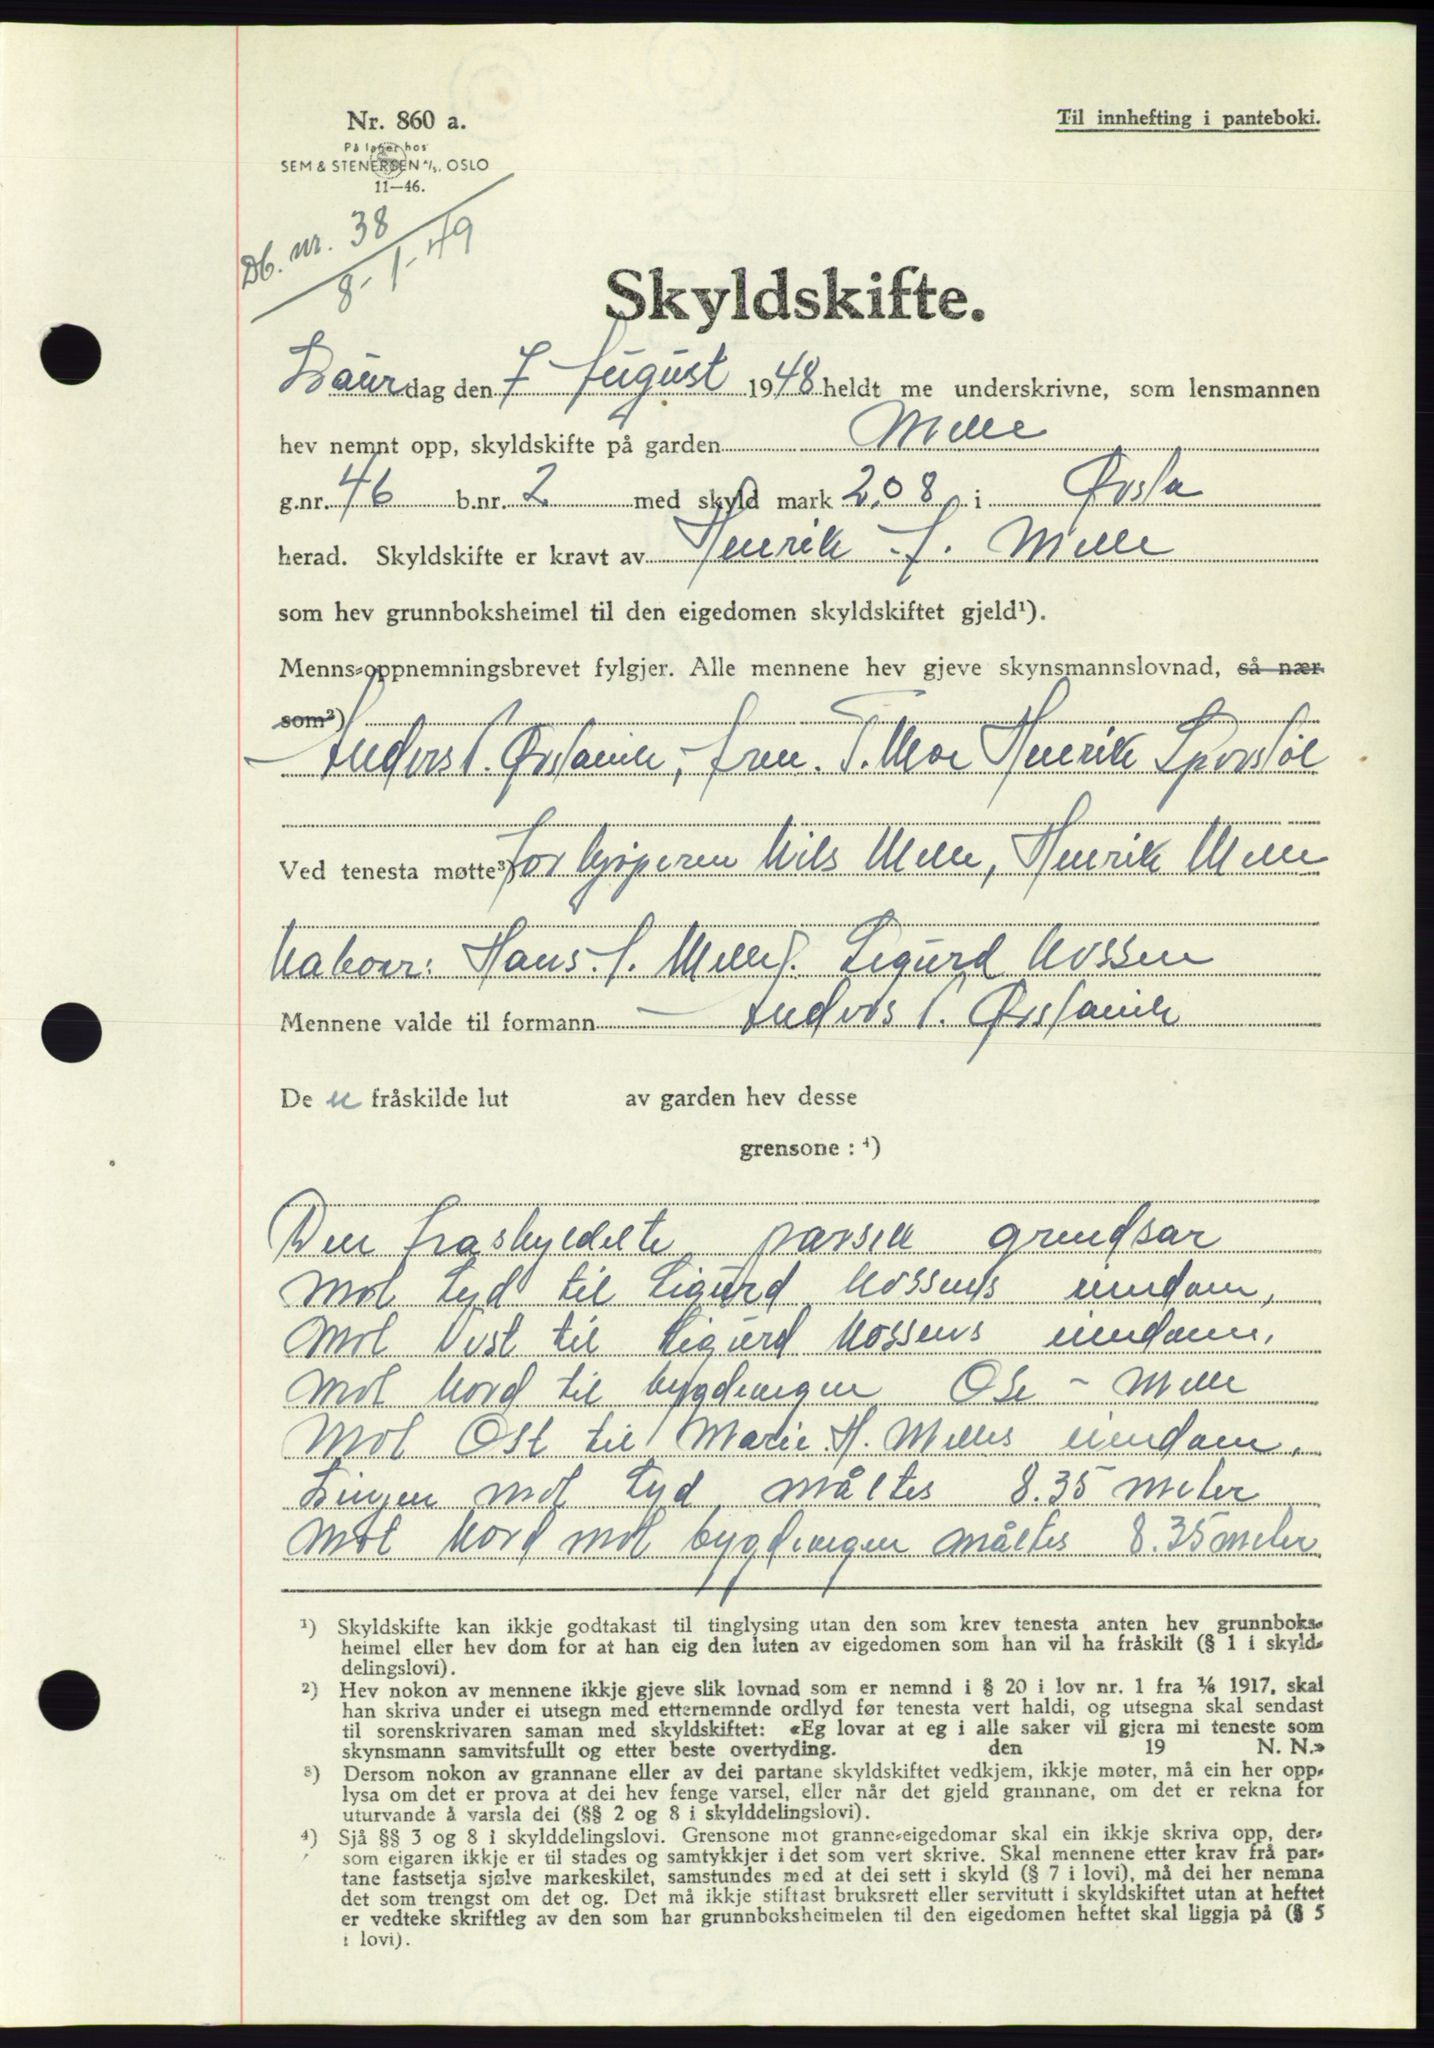 Nr. 860 a.
På lager hos
SEM & STENERSEN A/S. OSLO
11—46.
Til innhefting i panteboki.
Db. nr. 38
8-1-49
Skyldskifte.
Laurdag den 7 August 1948 heldt me underskrivne, som lensmannen
hev nemnt opp, skyldskifte på garden Melle
g.nr. 46 b.nr. 2 med skyld mark 2,08 i Ørsta
herad. Skyldskifte er kravt av Henrik J. Melle
som hev grunnboksheimel til den eigedomen skyldskiftet gjeld¹).
Menns-oppnemningsbrevet fylgjer. Alle mennene hev gjeve skynsmannslovnad, så nær
som²)
Anders P. Ørstavik, T. Moe Henrik
Ved tenesta møtte³) for kjøperen Nils Melle, Henrik Melle
Naboer: Hans. J. Melle. Sigurd Mossen
Mennene valde til formann Anders P. Ørstavik
De n fråskilde lut av garden hev desse
grensone : ⁴)
Den fraskyldelte parsell grendsar
Mot Syd til Sigurd Mossens eiendom,
Mot Vest til Sigurd Mossens eiendom,
Mot Nord til bygdevegen Ose - Melle
Mot Ost til Marie H. Melles eiendom.
Linjen mot Syd måltes 8.35 meter
Mot Nord mot bygdevegen måltes 8.35 meter
¹) Skyldskifte kan ikkje godtakast til tinglysing utan den som krev tenesta anten hev grunnboks-
heimel eller hev dom for at han eig den luten av eigedomen som han vil ha fråskilt (§ 1 i skyld-
delingslovi).
²) Hev nokon av mennene ikkje gjeve slik lovnad som er nemnd i § 20 i lov nr. 1 fra 1/6 1917, skal
han skriva under ei utsegn med etternemnde ordlyd før tenesta vert haldi, og utsegna skal sendast
til sorenskrivaren saman med skyldskiftet: «Eg lovar at eg i alle saker vil gjera mi teneste som
skynsmann samvitsfullt og etter beste overtyding. den 19 N. N.»
³) Dersom nokon av grannane eller av dei partane skyldskiftet vedkjem, ikkje møter, må ein her opp-
lysa om det er prova at dei hev fenge varsel, eller når det gjeld grannane, om det er rekna for
uturvande å varsla dei (§§ 2 og 8 i skylddelingslovi).
⁴) Sjå §§ 3 og 8 i skylddelingslovi. Grensone mot granne-eigedomar skal ein ikkje skriva opp, der-
som eigaren ikkje er til stades og samtykkjer i det som vert skrive. Skal mennene etter krav frå par-
tane fastsetja sjølve markeskilet, samstundes med at dei sett i skyld (§ 7 i lovi), må dei her nemna
det som trengst om det og. Det må ikkje stiftast bruksrett eller servitutt i skyldskiftet utan at heftet
er vedteke skriftleg av den som har grunnboksheimelen til den eigedomen heftet skal liggja på (§ 5
i lovi).